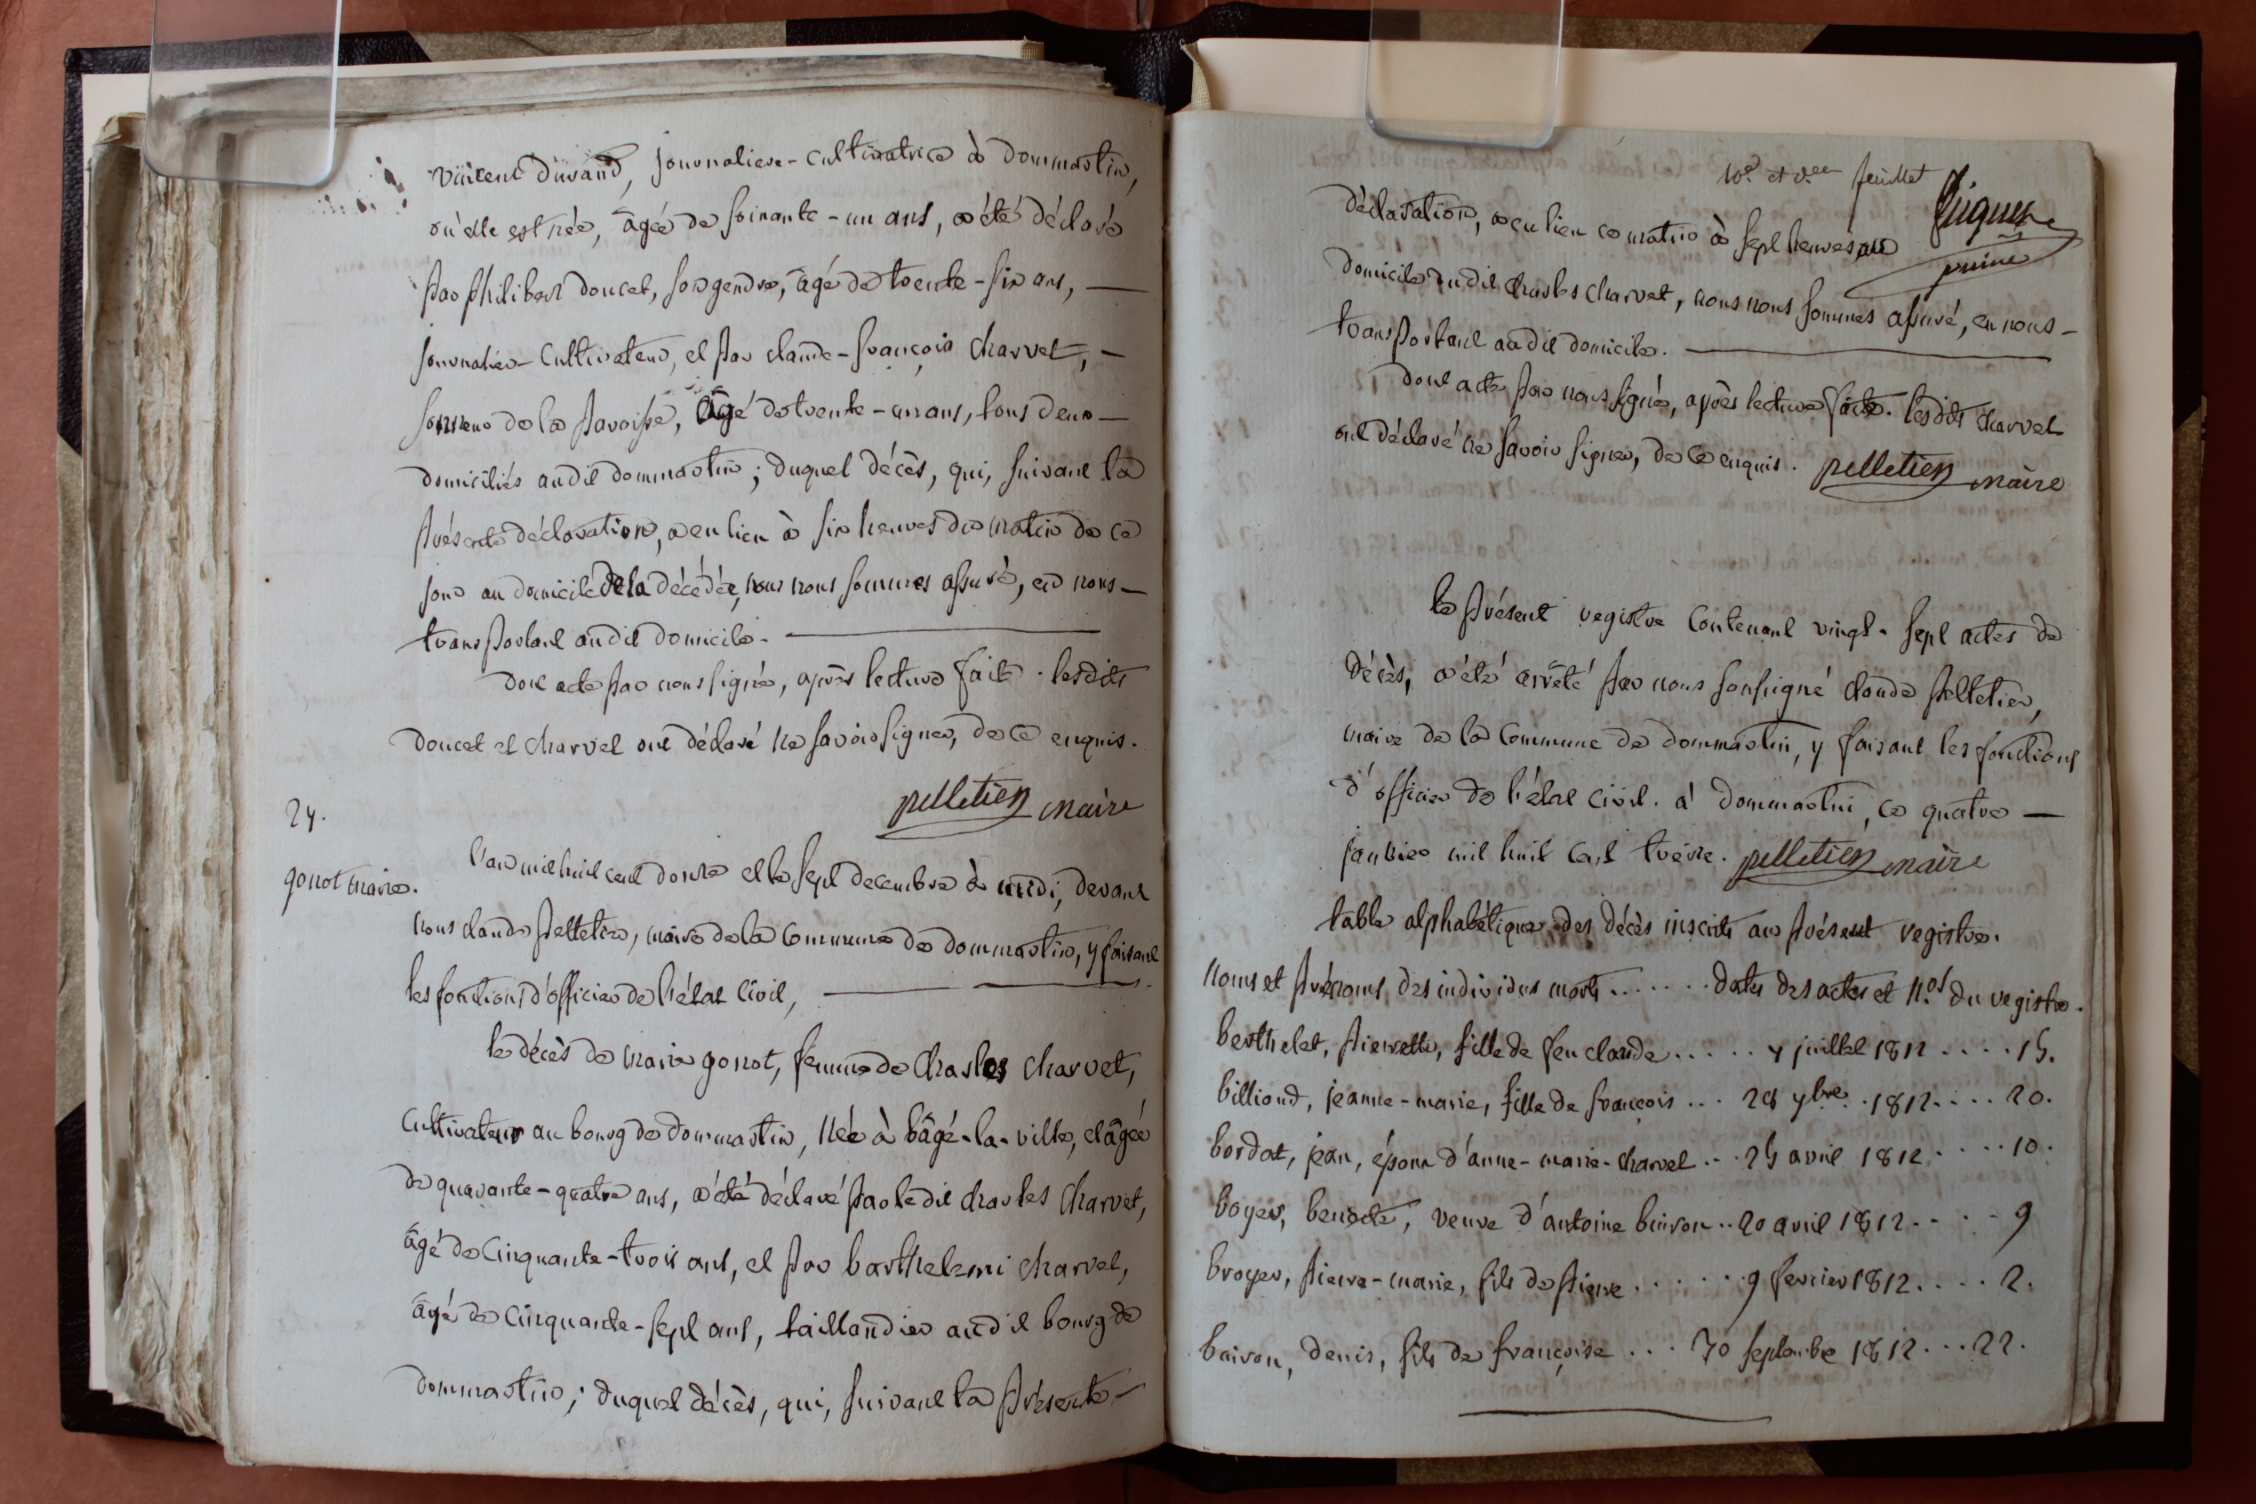 vincent durand, journaliere-cultivatrice à dommartin,
où elle est née, âgée de soixante-un ans, a été déclaré
par philibert doucet, son gendre, âgé de trente-six ans,
journalier-cultivateur, et par claude-françois charvet,
sonneur de la paroisse, âgé de trente-un ans, tous deux
domiciliés audit dommartin; duquel décès, qui, suivant la
présente déclaration, a eu lieu à six heures du matin de ce
jour au domicile de la décédée, nous nous sommes assuré, en nous
transportant audit domicile.
dont acte par nous signé, après lecture faite. lesdits
doucet et charvet ont déclaré ne savoir signer, de ce enquis.
pelletier maire
27.
gonot marie.
l'an mil huit cent douze et le sept decembre à midi, devant
nous claude pelletier, maire de la commune de dommartin, y faisant
les fonctions d'officier de l'état civil,
le décès de marie gonot, femme de charles charvet,
cultivateur au bourg de dommartin, née à bâgé-la-ville, et âgée
de quarante-quatre ans, a été déclaré par ledit charles charvet,
âgé de cinquante-trois ans, et par barthelemi charvet,
âgé de cinquante-sept ans, taillandier audit bourg de
dommartin; duquel décès, qui, suivant la présente
10e et der feuillet
déclaration, a eu lieu ce matin à sept heures au
domicile dudit charles charvet, nous nous sommes assuré, en nous
transportant audit domicile.
dont acte par nous signé, après lecture faite. lesdits charvet
ont déclaré ne savoir signer, de ce enquis. pelletier maire
le présent registre contenant vingt-sept actes de
décès, a été arrêté par nous soussigné claude pelletier,
maire de la commune de dommartin, y faisant les fonctions
d'officier de l'état civil. à dommartin, ce quatre
janvier mil huit cent treize. pelletier maire
table alphabétique des décès inscrits au présent registre.
noms et prénoms des individus morts ...... dates des actes et nos du registre.
berthelet, pierrette, fille de feu claude ..... 7 juillet 1812 .... 15.
billioud, jeanne-marie, fille de françois ... 28 7bre 1812 .... 20.
bordat, jean, époux d'anne-marie-charvet ... 25 avril 1812 ..... 10.
boyer, benoite, veuve d'antoine buiron .. 20 avril 1812 .... 9
broyer, pierre-marie, fils de pierre ...... 9 fevrier 1812 .... 2.
buiron, denis, fils de françoise ... 30 septembre 1812 ... 22.